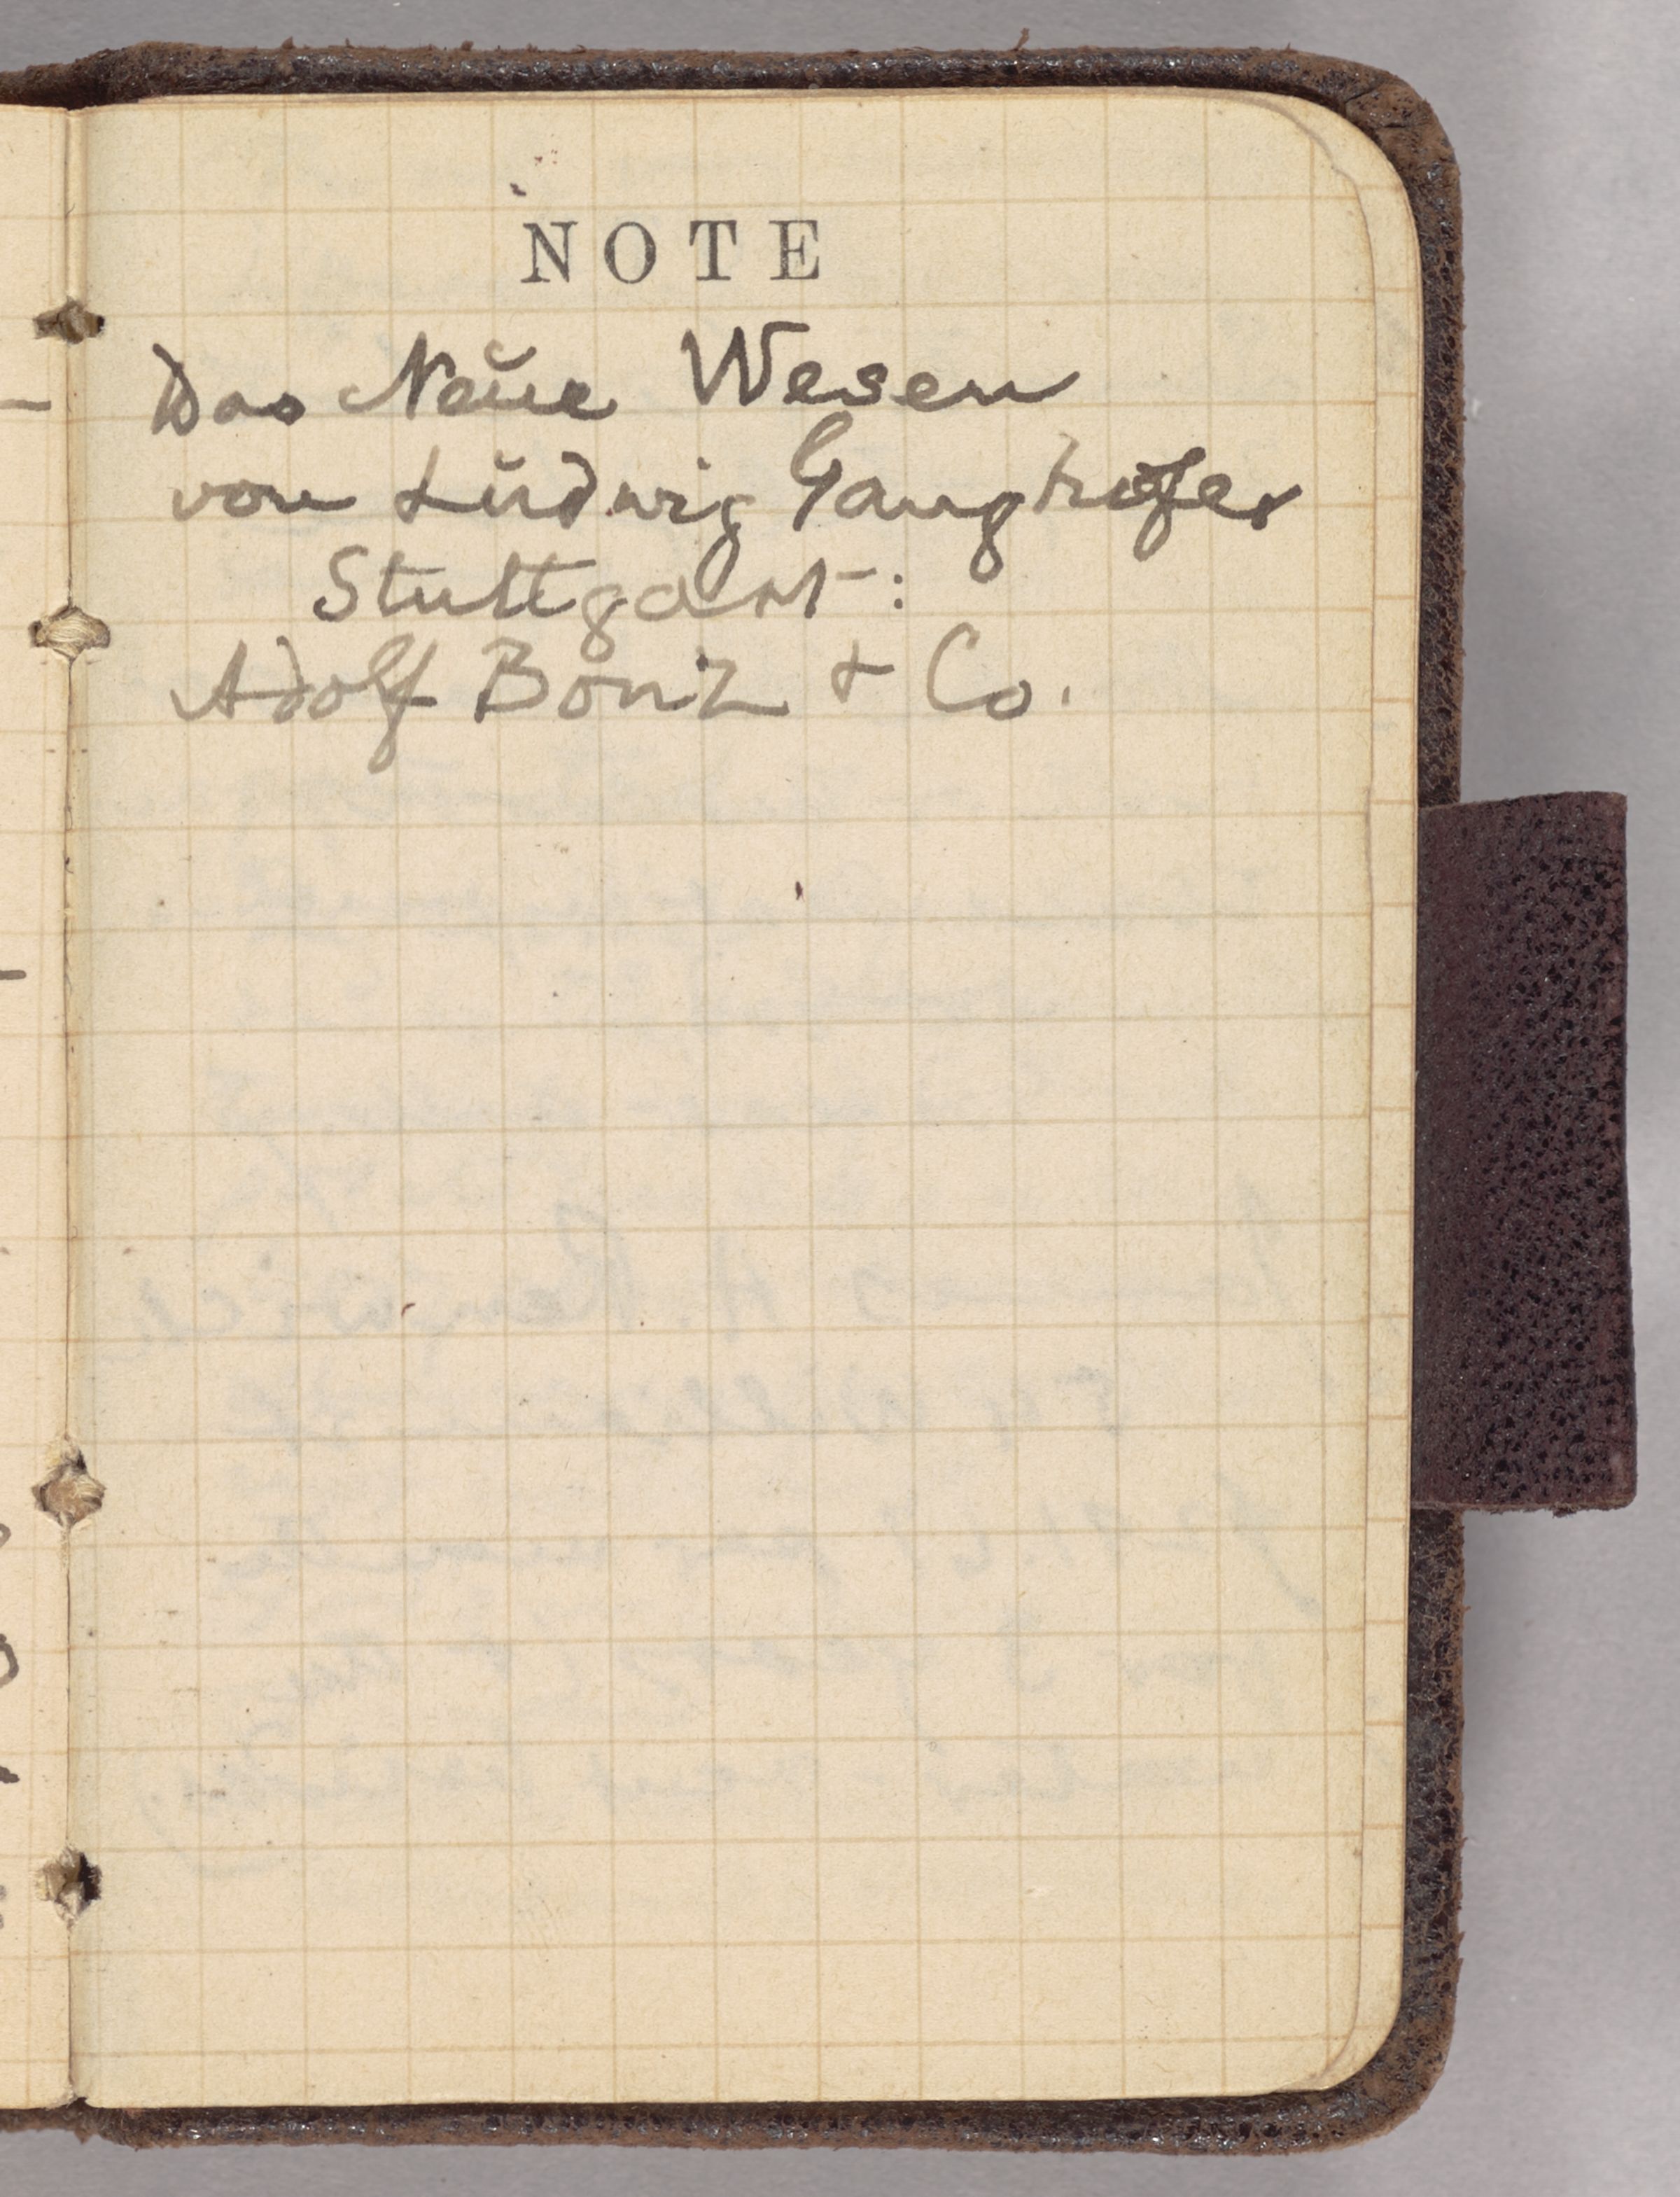 NOTE
Das Neue Wesen
von Ludwig Ganghofer
Stuttgart:
Adolf Bonz + Co.